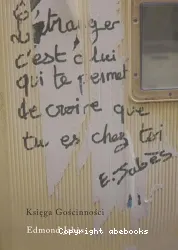 L'étranger
c'est celui
qui te permet
de croire que
tu es chez toi
E. Jabès
Księga Gościnności
Edmond Jabès
Copyright abebooks